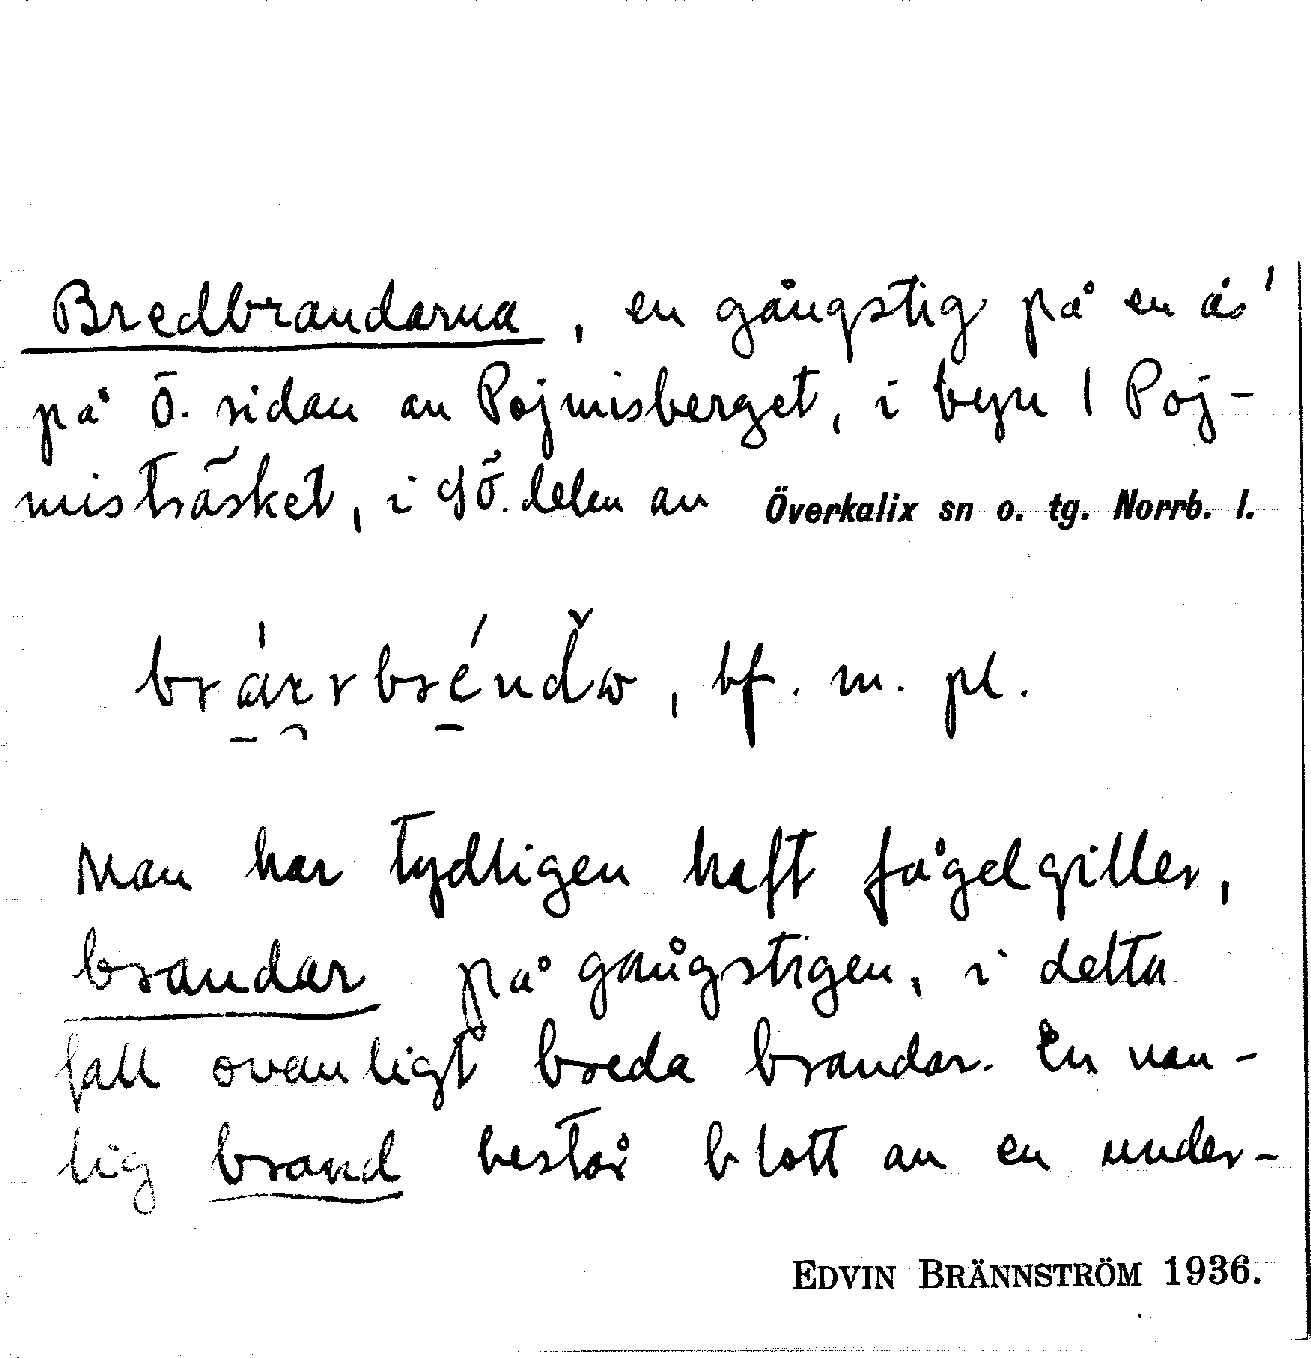 Bredbrandarna, en gångstig på en ås
på Ö. sidan av Pojmisberget, i byn 1 Poj-
misträsket, i SÖ. delen av Överkalix sn o. tg. Norrb. l.
bf. m. pl.
Man har tydligen haft fågelgiller,
brandar på gångstigen, i detta
fall ovanligt breda brandar. En van-
lig brand består blott av en under-
EDVIN BRÄNNSTRÖM 1936.